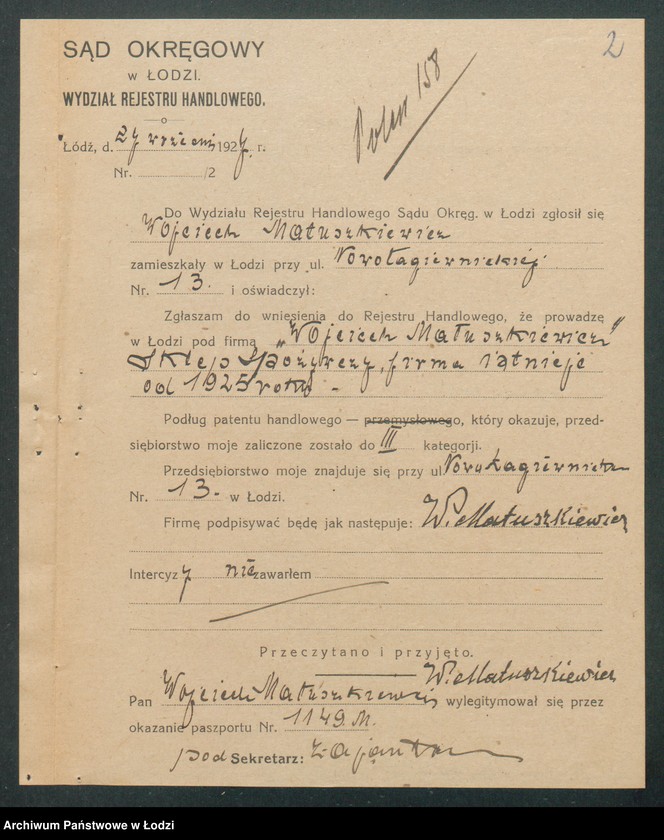 2
SĄD OKRĘGOWY
w ŁODZI.
WYDZIAŁ REJESTRU HANDLOWEGO.
158
Łódź, d. 27 wrześni 1927 r.
Nr. /2
Do Wydziału Rejestru Handlowego Sądu Okręg. w Łodzi zgłosił się
Wojciech Matuszkiewicz
zamieszkały w Łodzi przy ul. Nowołagiewnickiej
Nr. 13. i oświadczył:
Zgłaszam do wniesienia do Rejestru Handlowego, że prowadzę
w Łodzi pod firmą „Wojciech Matuszkiewicz”
Sklep Spożywczy, firma istnieje
od 1925 roku -
Podług patentu handlowego — przemysłowego, który okazuje, przed-
siębiorstwo moje zaliczone zostało do III kategorji.
Przedsiębiorstwo moje znajduje się przy ul Nowołagiewnicka
Nr. 13. w Łodzi.
Firmę podpisywać będę jak następuje: W. Matuszkiewicz
Intercyzy nie zawarłem
Przeczytano i przyjęto.
W. Matuszkiewicz
Pan Wojciech Matuszkiewicz wylegitymował się przez
okazanie paszportu Nr. 1149.M.
pod Sekretarz:
Archiwum Państwowe w Łodzi